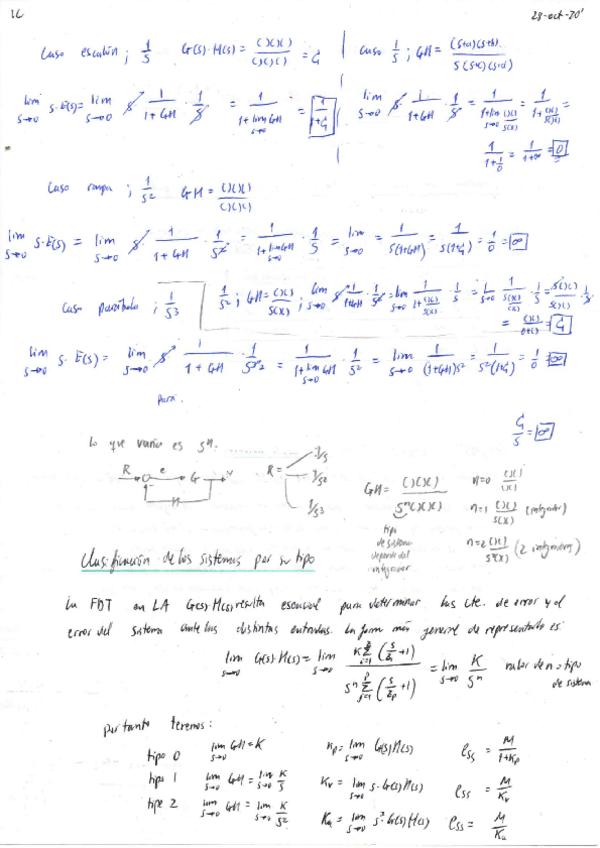 16
28-oct-20'
Caso escalón ; 1/S G(s)·H(s) = ( )( )( )/( )( )( ) = G
caso 1/S ; GH = (s+a)(s+b)/S(s+c)(s+d)
lim s→0 s·E(s) = lim s→0 s · 1/(1+GH) · 1/S = 1/(1+lim s→0 GH) = 1/(1+G)
lim s→0 s · 1/(1+GH) · 1/S = 1/(1+lim s→0 ( )( )/S( )) = 1/(1+( )( )/S( )) =
1/(1+1/0) = 1/(1+∞) = 0
Caso rampa ; 1/S² GH = ( )( )( )/( )( )( )
lim s→0 s·E(s) = lim s→0 s · 1/(1+GH) · 1/S² = 1/(1+lim s→0 GH) · 1/S = lim s→0 = 1/S(1+GH) = 1/S(1+G) = 1/0 = ∞
Caso parábola ; 1/S³
1/S² ; GH = ( )( )/S( ) ; lim s→0
= G
lim s→0 s·E(s) = lim s→0 s · 1/(1+GH) · 1/S³ = 1/(1+lim s→0 GH) · 1/S² = lim s→0 1/(1+GH)S² = 1/S²(1+G) = 1/0 = ∞
para.
G/S = ∞
Lo que varía es Sⁿ.
R e G H
R = 1/S 1/S² 1/S³
GH = ( )( )( )/Sⁿ( )( )( )
n=0 ( )( )/( )( )
n=1 ( )( )/S( )( ) (integrador)
n=2 ( )( )/S²( )( ) (2 integradores)
tipo
de sistema
depende del
integrador
Clasificación de los sistemas por su tipo
La FDT en LA G(s)·H(s) resulta esencial para determinar las cte. de error y el
error del sistema ante las distintas entradas. La forma más general de representarlo es:
lim s→0 G(s)·H(s) = lim s→0 = lim s→0 K/Sⁿ valor de n = tipo
de sistema
por tanto tenemos:
tipo 0 lim s→0 GH = K Kp = lim s→0 G(s)H(s) ess = M/(1+Kp)
tipo 1 lim s→0 GH = lim s→0 K/S Kv = lim s→0 s·G(s)H(s) ess = M/Kv
tipo 2 lim s→0 GH = lim s→0 K/S² Ka = lim s→0 s²·G(s)H(s) ess = M/Ka